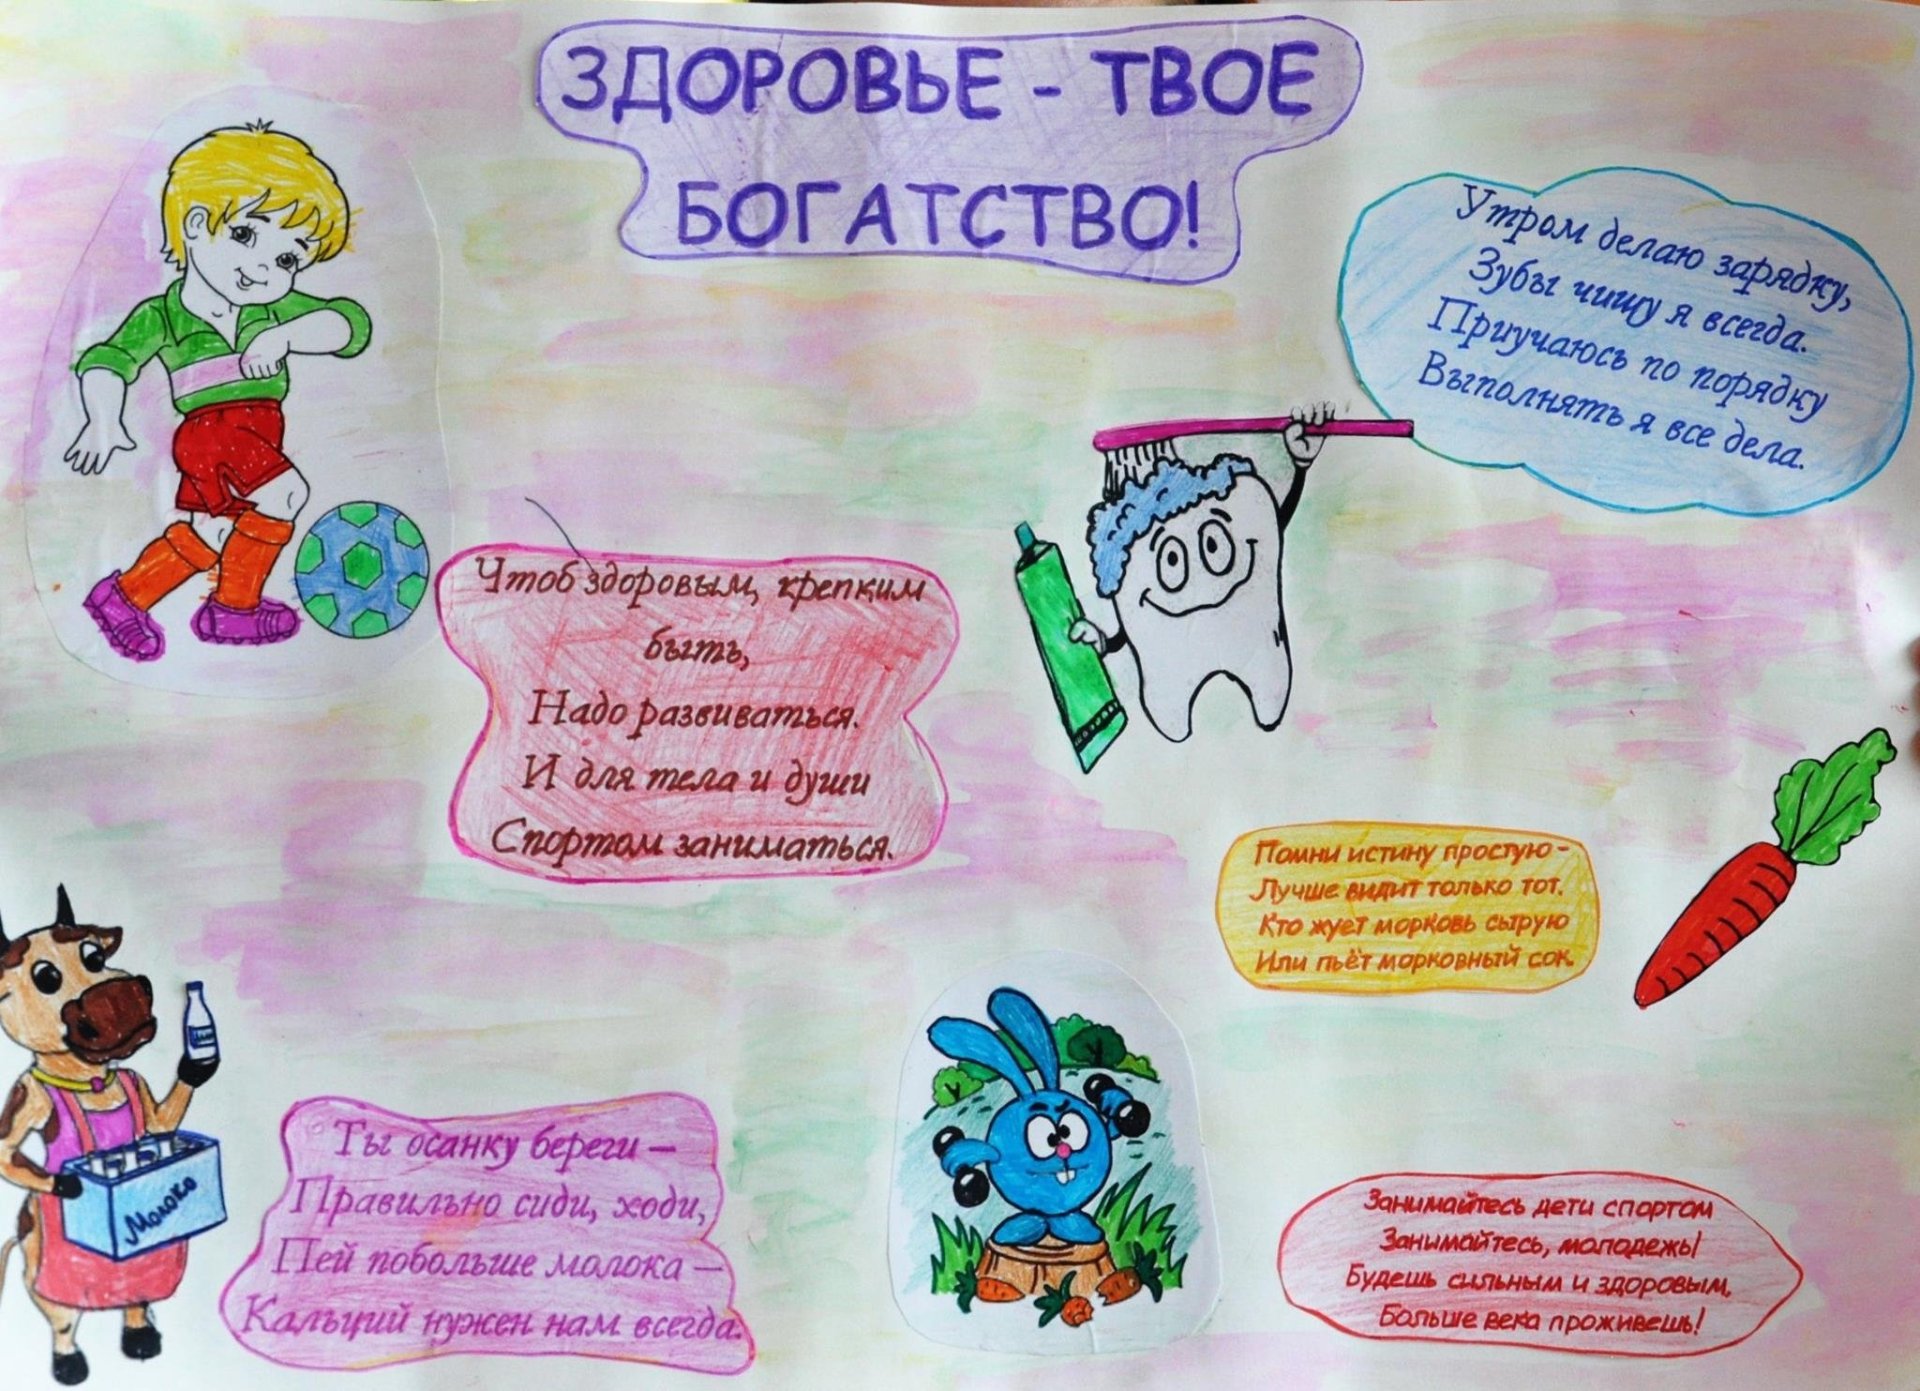 ЗДОРОВЬЕ - ТВОЕ
БОГАТСТВО!
Утром делаю зарядку,
Зубы чищу я всегда.
Приучаюсь по порядку
Выполнять я все дела.
Чтоб здоровым, крепким
быть,
Надо развиваться.
И для тела и души
Спортом заниматься.
Помни истину простую -
Лучше видит только тот.
Кто жует морковь сырую
Или пьёт морковный сок.
Ты осанку береги —
Правильно сиди, ходи,
Пей побольше молока —
Кальций нужен нам всегда.
Молоко
Занимайтесь дети спортом
Занимайтесь, молодежь!
Будешь сильным и здоровым,
Больше века проживешь!